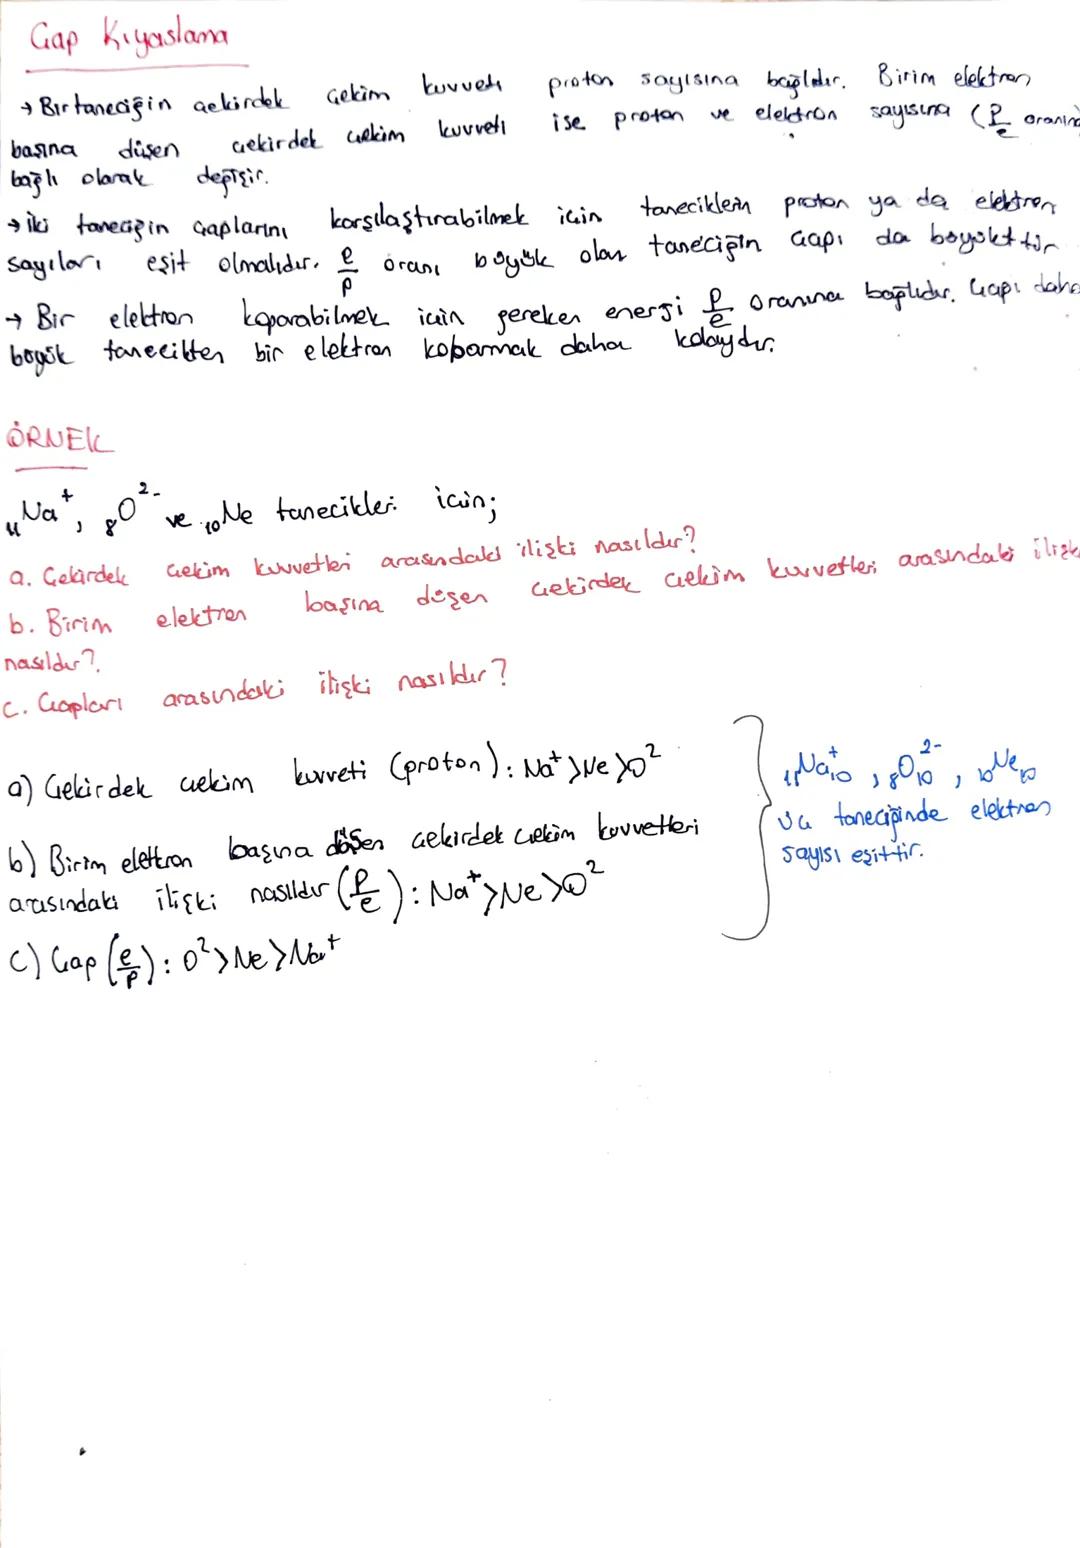 Çap Kıyaslama
→ Bir taneciğin çekirdek çekim kuvveti proton sayısına bağlıdır. Birim elektron
başına düşen çekirdek çekim kuvveti ise proton ve elektron sayısına (p/e oranına
bağlı olarak değişir.
→ İki taneciğin çaplarını karşılaştırabilmek için taneciklerin proton ya da elektron
sayıları eşit olmalıdır. e/p oranı büyük olan taneciğin çapı da büyüktür
→ Bir elektron koparabilmek için gereken enerji p/e oranına bağlıdır. Çapı daha
büyük tanecikten bir elektron koparmak daha kolaydır.
ÖRNEK
₁₁Na⁺, ₈O²⁻ ve ₁₀Ne tanecikleri için;
a. Çekirdek çekim kuvvetleri arasındaki ilişki nasıldır?
b. Birim elektron başına düşen çekirdek çekim kuvvetleri arasındaki ilişki
nasıldır?
c. Çapları arasındaki ilişki nasıldır?
a) Çekirdek çekim kuvveti (proton): Na⁺>Ne>O²
b) Birim elektron başına düşen çekirdek çekim kuvvetleri
arasındaki ilişki nasıldır (p/e): Na⁺>Ne>O²
c) Çap (e/p): O²>Ne>Na⁺
₁₁Na⁺₁₀, ₈O²⁻₁₀, ₁₀Ne₁₀
üç taneciğinde elektron
sayısı eşittir.